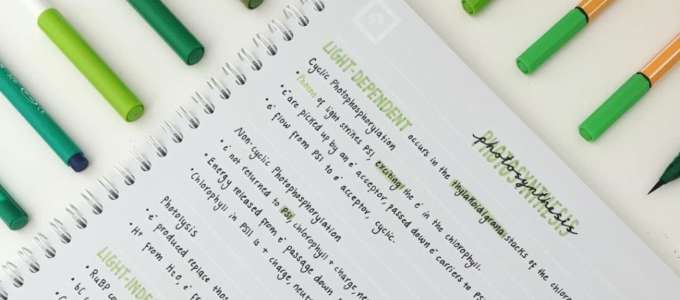 PHOTOSYNTHESIS
photosynthesis
LIGHT-DEPENDENT occurs in the thylakoid/grana stacks of the
Cyclic Photophosphorylation
• Photons of light strikes PSI, exciting the e⁻ in the chlorophyll.
• e⁻ are picked up by an e⁻ acceptor, passed down e⁻ carriers to
• e⁻ flow from PSI to e⁻ acceptor, cyclic.
Non-cyclic Photophosphorylation
• e⁻ not returned to PSI, chlorophyll + charge,
• Energy released from e⁻ passage down
• Chlorophyll in PSII is + charge,
Photolysis
• e⁻ produced replace those
• H⁺ from H₂O, e⁻
LIGHT-INDE
• RuBP
• 6C